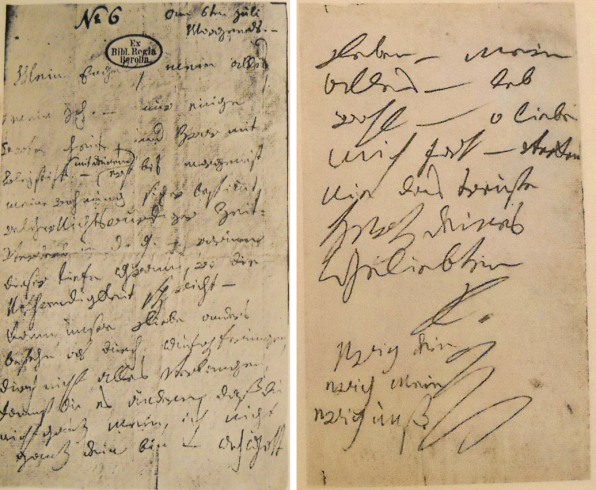 No 6
am 6ten Juli
Morgends. –
Ex
Bibl. Regia
Berolin.
Mein Engel, mein alles
mein Ich. – nur einige
Worte heute, und zwar mit
Bleystift – (mit deinem) erst bis morgen ist
meine Wohnung sicher bestimt,
welcher Nichtswürdiger Zeit-
Verderb in d. g. – warum
dieser tiefe Gram, wo die
Nothwendigkeit spricht –
Kann unsre Liebe anders
bestehn als durch Aufopferungen,
durch nicht alles verlangen,
kannst du es ändern, daß du
nicht ganz mein, ich nicht
ganz dein bin – Ach Gott
Leben – Mein
alles – leb
wohl – o liebe
mich fort – verken
nie das treuste
Herz deines
Geliebten
L.
ewig dein
ewig mein
ewig unß